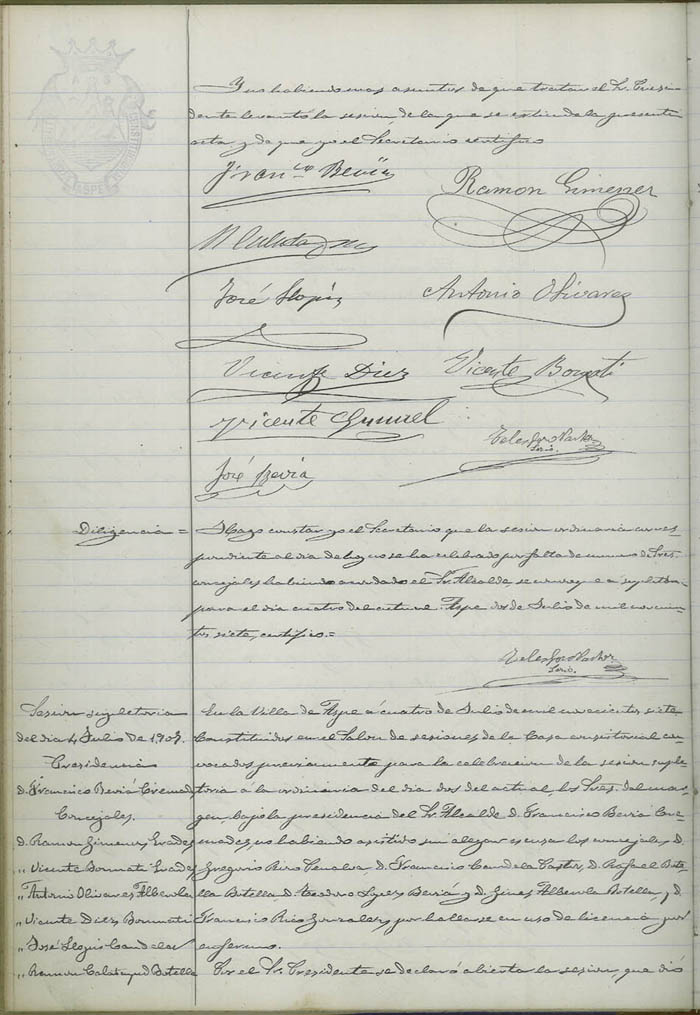 Y no habiendo mas asuntos de que tratar el Sr. Presi-
dente levantó la sesion, de la que se estiende la presente
acta y de que yo el Secretario certifico
Fran.co Beviá
Ramon Gimenez
R Calatayud
José Llopiz
Antonio Olivares
Vicente Diez
Vicente Bonati
Vicente
Telesforo Pastor
Srio.
José Beviá
Diligencia =
Hago constar yo el Secretario que la sesion ordinaria corres-
pondiente al dia de hoy no se ha celebrado por falta de numero de Sres.
concejales habiendo acordado el Sr. Alcalde, se convoque a supletoria
para el dia cuatro del actual. Aspe dos de Julio de mil novecien-
tos siete, certifico.=
Telesforo Pastor
Srio.
Sesion supletoria
del dia 4 Julio de 1907.
Presidencia
D. Francisco Beviá Cremades
Concejales.
D. Ramon Gimenez Prades
,, Vicente Bonmati Prades
,, Antonio Olivares Alberola
,, Vicente Diez Bonmati
,, José Llopis Candela
,, Ramon Calatayud Botella
En la Villa de Aspe á cuatro de Julio de mil novecientos siete
Constituidos en el Salon de sesiones de la Casa consistorial con-
vocados previamente para la celebracion de la sesion suple-
toria á la ordinaria del dia dos del actual, los Sres. del mar-
gen bajo la presidencia del Sr. Alcalde D. Francisco Beviá Cre-
mades, no habiendo asistido sin alegar escusa los concejales D.
Gregorio Rico Penalva, D. Francisco Candela Pastor, D. Rafael Bote-
lla Botella, D. Teodoro Lopez Beviá y D. Gines Alberola Botella, y D.
Francisco Rico Gonzalez por hallarse en uso de licencia por
enfermo.
Por el Sr. Presidente se declaró abierta la sesion, que dió